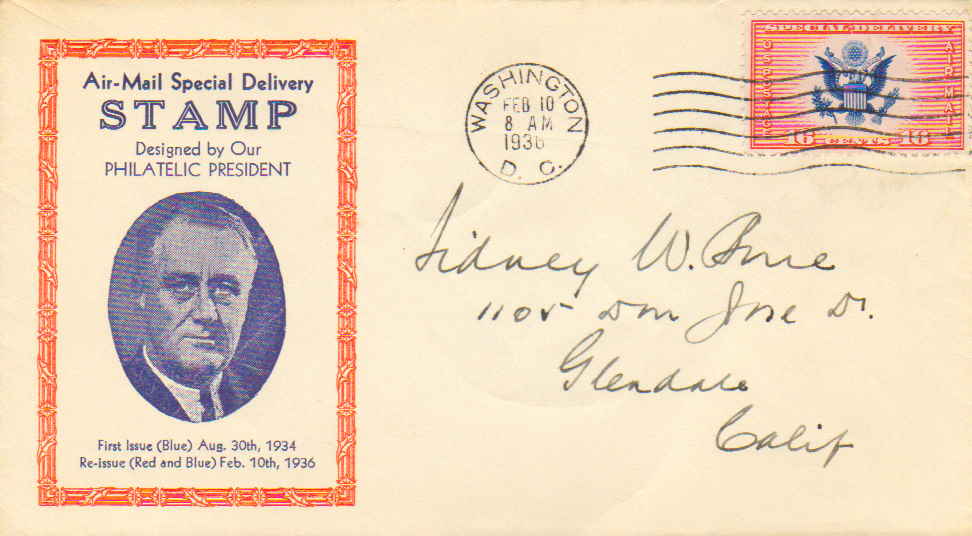 Air-Mail Special Delivery
STAMP
Designed by Our
PHILATELIC PRESIDENT
First Issue (Blue) Aug. 30th, 1934
Re-issue (Red and Blue) Feb. 10th, 1936
WASHINGTON
FEB 10
8 AM
1936
D. C.
SPECIAL DELIVERY
U S POSTAGE
AIR MAIL
16 CENTS 16
Sidney W.
1105 Don Jose Dr.
Glendale
Calif